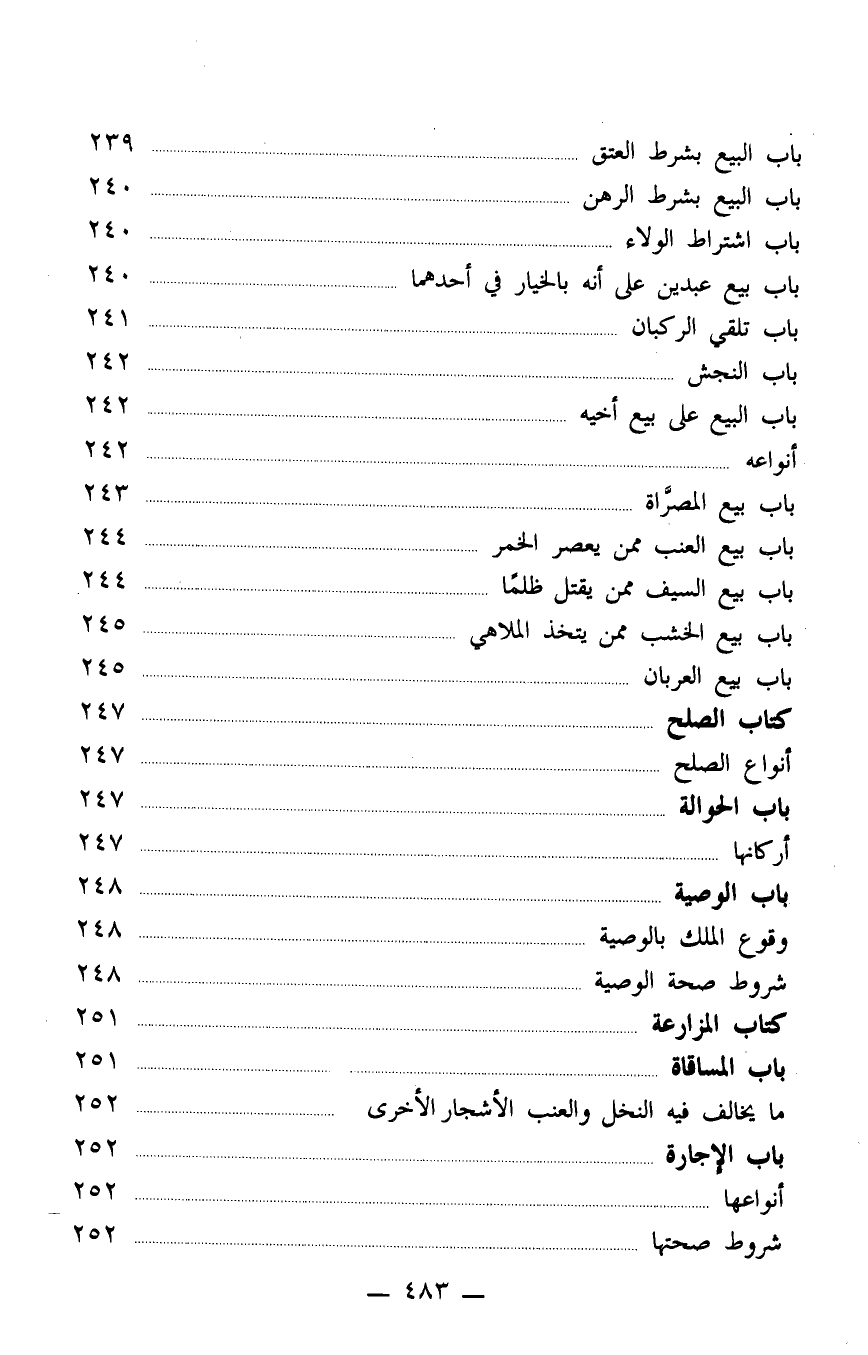 باب البيع بشرط العتق ........ ٢٣٩
باب البيع بشرط الرهن ........ ٢٤٠
باب اشتراط الولاء ........ ٢٤٠
باب بيع عبدين على أنه بالخيار في أحدهما ........ ٢٤٠
باب تلقي الركبان ........ ٢٤١
باب النجش ........ ٢٤٢
باب البيع على بيع أخيه ........ ٢٤٢
أنواعه ........ ٢٤٢
باب بيع المصرَّاة ........ ٢٤٣
باب بيع العنب ممن يعصر الخمر ........ ٢٤٤
باب بيع السيف ممن يقتل ظلمًا ........ ٢٤٤
باب بيع الخشب ممن يتخذ الملاهي ........ ٢٤٥
باب بيع العربان ........ ٢٤٥
كتاب الصلح ........ ٢٤٧
أنواع الصلح ........ ٢٤٧
باب الحوالة ........ ٢٤٧
أركانها ........ ٢٤٧
باب الوصية ........ ٢٤٨
وقوع الملك بالوصية ........ ٢٤٨
شروط صحة الوصية ........ ٢٤٨
كتاب المزارعة ........ ٢٥١
باب المساقاة ........ ٢٥١
ما يخالف فيه النخل والعنب الأشجار الأخرى ........ ٢٥٢
باب الإجارة ........ ٢٥٢
أنواعها ........ ٢٥٢
شروط صحتها ........ ٢٥٢
— ٤٨٣ —